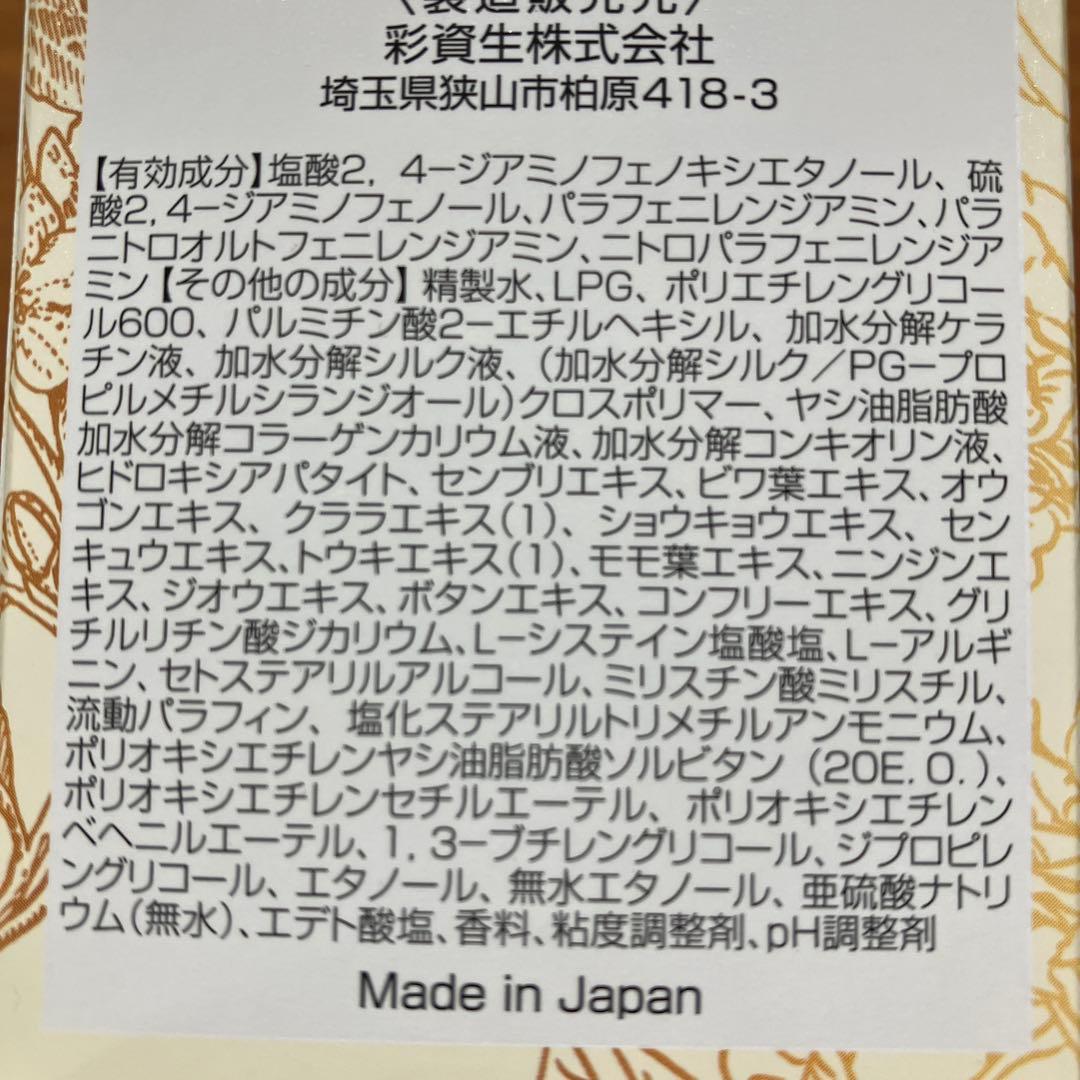 〈製造販売元〉
彩資生株式会社
埼玉県狭山市柏原418-3
【有効成分】塩酸2, 4−ジアミノフェノキシエタノール、硫
酸2, 4−ジアミノフェノール、パラフェニレンジアミン、パラ
ニトロオルトフェニレンジアミン、ニトロパラフェニレンジア
ミン【その他の成分】精製水、LPG、ポリエチレングリコー
ル600、パルミチン酸2−エチルヘキシル、加水分解ケラ
チン液、加水分解シルク液、(加水分解シルク／PG−プロ
ピルメチルシランジオール)クロスポリマー、ヤシ油脂肪酸
加水分解コラーゲンカリウム液、加水分解コンキオリン液、
ヒドロキシアパタイト、センブリエキス、ビワ葉エキス、オウ
ゴンエキス、クララエキス(1)、ショウキョウエキス、セン
キュウエキス、トウキエキス(1)、モモ葉エキス、ニンジンエ
キス、ジオウエキス、ボタンエキス、コンフリーエキス、グリ
チルリチン酸ジカリウム、L−システイン塩酸塩、L−アルギ
ニン、セトステアリルアルコール、ミリスチン酸ミリスチル、
流動パラフィン、塩化ステアリルトリメチルアンモニウム、
ポリオキシエチレンヤシ油脂肪酸ソルビタン (20E.O.)、
ポリオキシエチレンセチルエーテル、ポリオキシエチレン
ベヘニルエーテル、1, 3−ブチレングリコール、ジプロピレ
ングリコール、エタノール、無水エタノール、亜硫酸ナトリ
ウム(無水)、エデト酸塩、香料、粘度調整剤、pH調整剤
Made in Japan